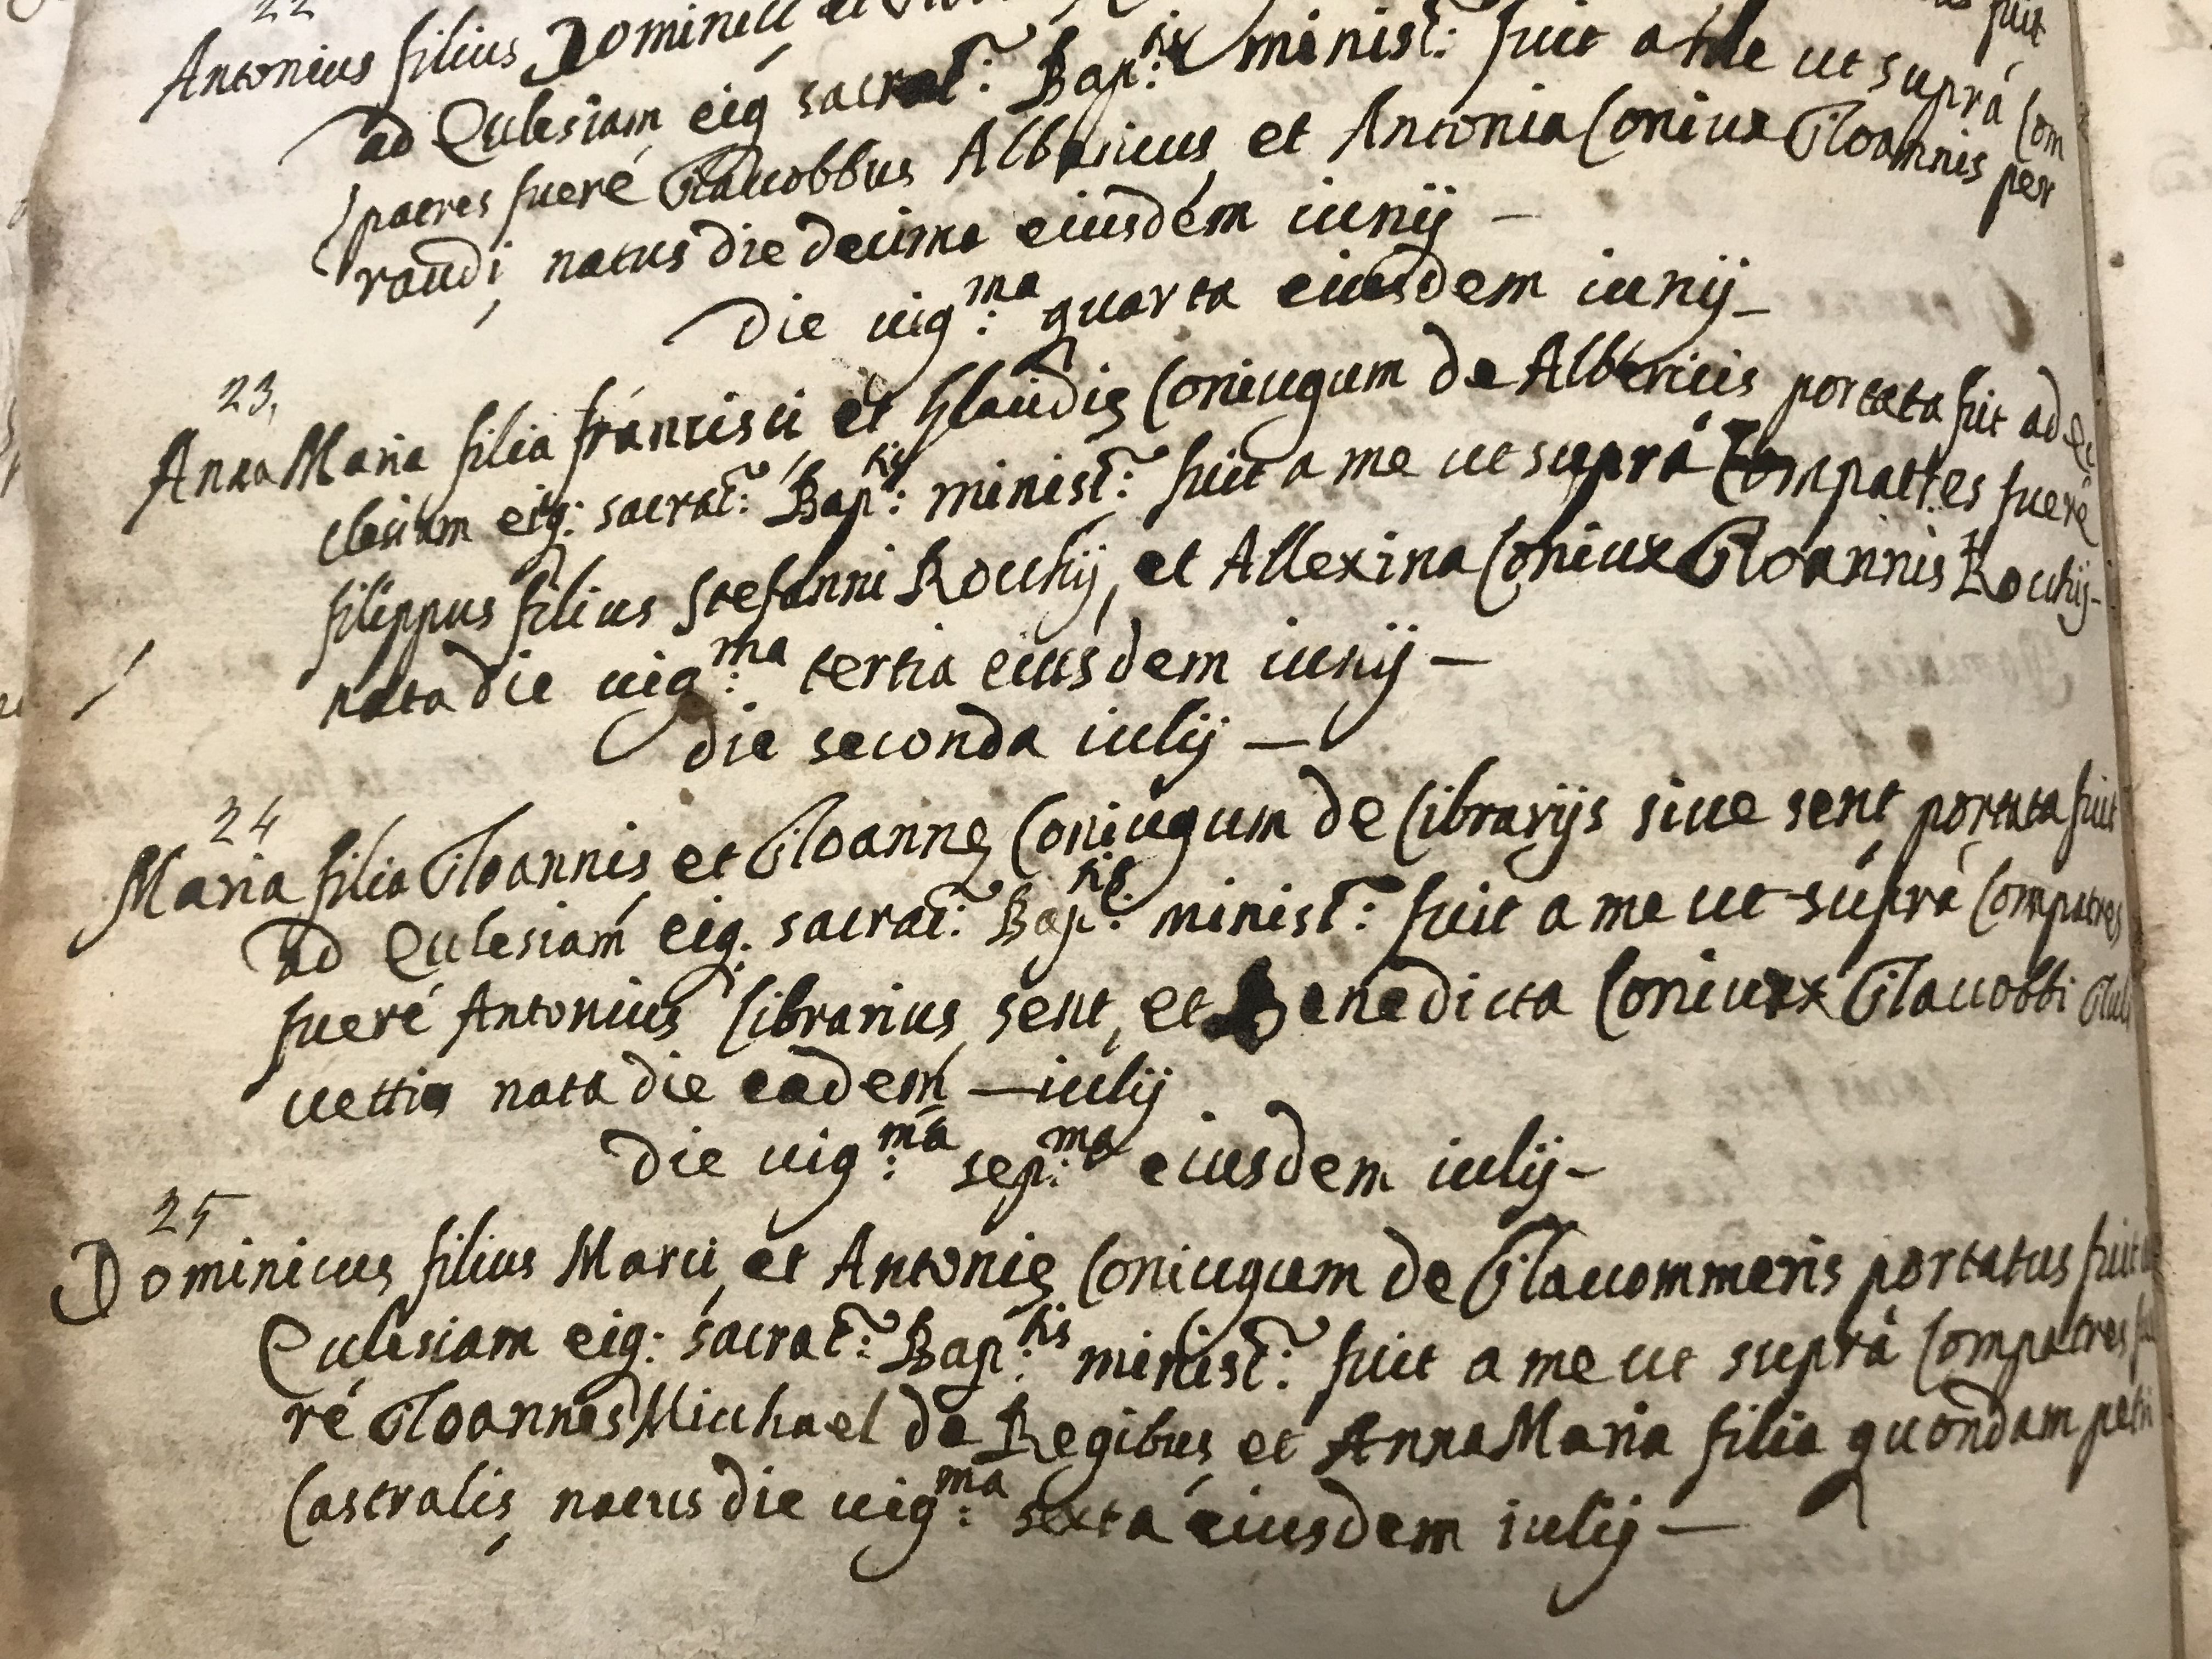 22
Antonius filius Dominici et
fuit
ad Eculesiam eiq sacrat: Bap:tis minist: fuit a me ut suprà Com
patres fueré Giacobbus Albericus, et Antonia Coniux Gioannis per
raudi, natus die decima eiusdem iunij —
die uig:ma quarta eiusdem iunij —
23,
Anna Maria filia francisci et Glaudię Coniugum de Albericis portata fuit ad Ec
clesiam eiq: sacrat: Bap:tis minist: fuit a me ut suprà Compatres fueré
filippus filius Stefanni Rochij, et Allexina Coniux Gioannis Rochij-
nata die uig:ma tertia eiusdem iunij —
die seconda iulij —
24
Maria filia Gioannis et Gioannę Coniugum de Librarijs siue sent, portata fuit
ad Eculesiam eiq. sacrat: Bap:tis minist: fuit a me ut suprà Compatres
fueré Antonius Librarius sent, et Benedicta Coniux Giacobbi
uettia nata die eadem — iulij
die uig:ma sep:ma eiusdem iulij —
25
Dominicus filius Marci, et Antonię Coniugum de Giacommeris portatus fuit
Eculesiam eiq: sacrat: Bap:tis minist: fuit a me ut suprà Compatres fu
ré Gioannes Michael de Regibus et Anna Maria filia quondam petri
Castralis, natus die uig:ma sexta eiusdem iulij —